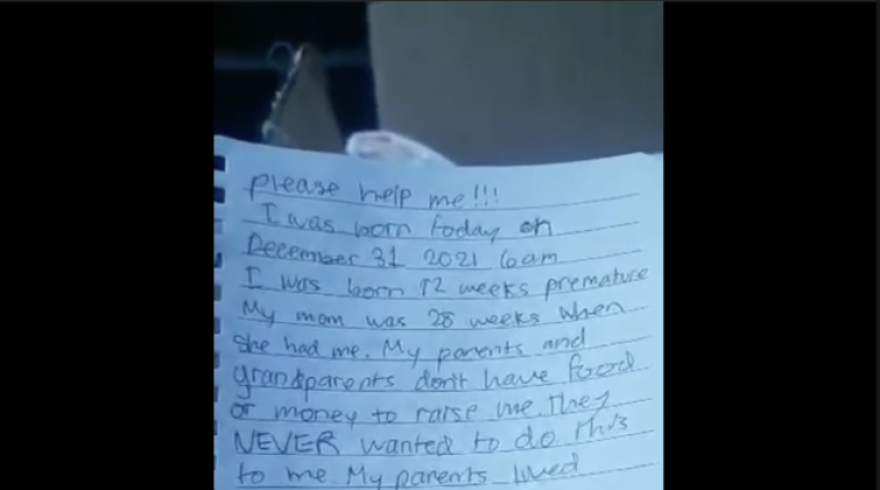 please help me!!!
I was born today on
December 31 2021 6am
I was born 12 weeks premature
My mom was 28 weeks when
she had me. My parents and
grandparents don't have food
or money to raise me. they
NEVER wanted to do this
to me My parents lived